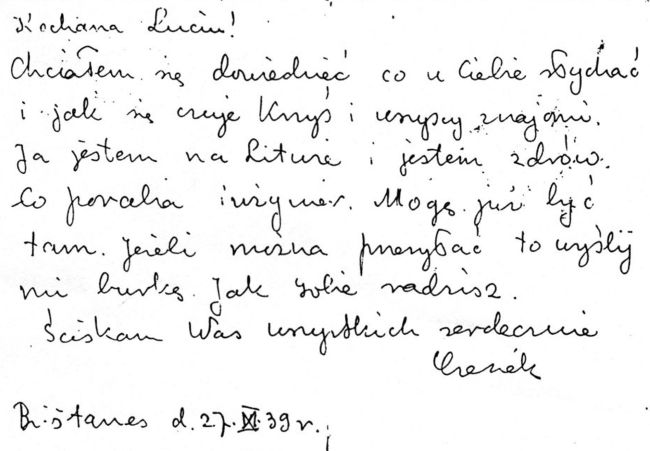 Kochana Luciu!
Chciałem się dowiedzieć co u Ciebie słychać
i jak się czuje Krzyś i wszyscy znajomi.
Ja jestem na Litwie i jestem zdrów.
Co porabia inżynier. Mogę już być
tam. Jeżeli można przesyłać to wyślij
mi burkę. Jak sobie radzisz.
Ściskam Was wszystkich serdecznie
Czesiek
d. 27.XI.39 r.